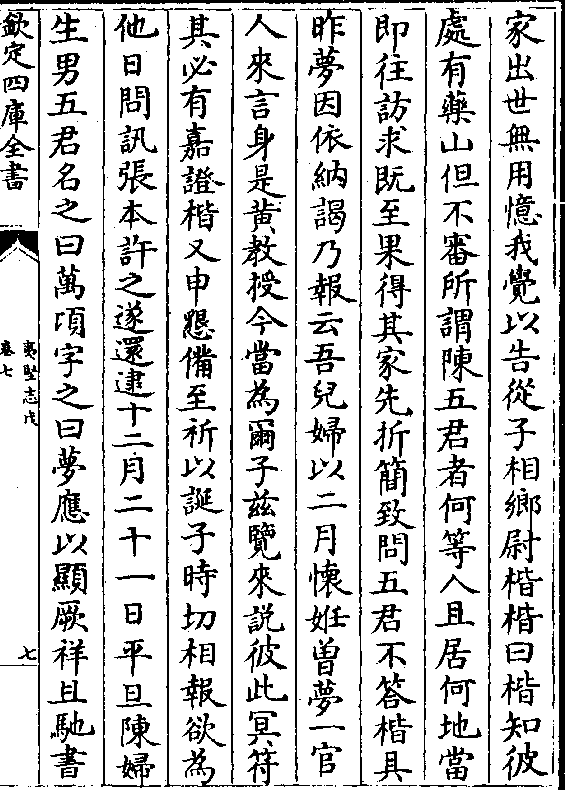 家出世無用憶我覺以告從子相鄉尉楷楷曰楷知彼
處有藥山但不審所謂陳五君者何等人且居何地當
即往訪求既至果得其家先折簡致問五君不答楷具
昨夢因依納謁乃報云吾兒婦以二月懷姙曽夢一官
人來言身是黄教授今當為爾子兹覽來説彼此冥符
其必有嘉證楷又申懇備至祈以誕子時切相報欲為
他日問訊張本許之遂還逮十二月二十一日平旦陳婦
生男五君名之曰萬頃字之曰夢應以顯厥祥且馳書
欽定四庫全書
夷堅志戊
卷七
七